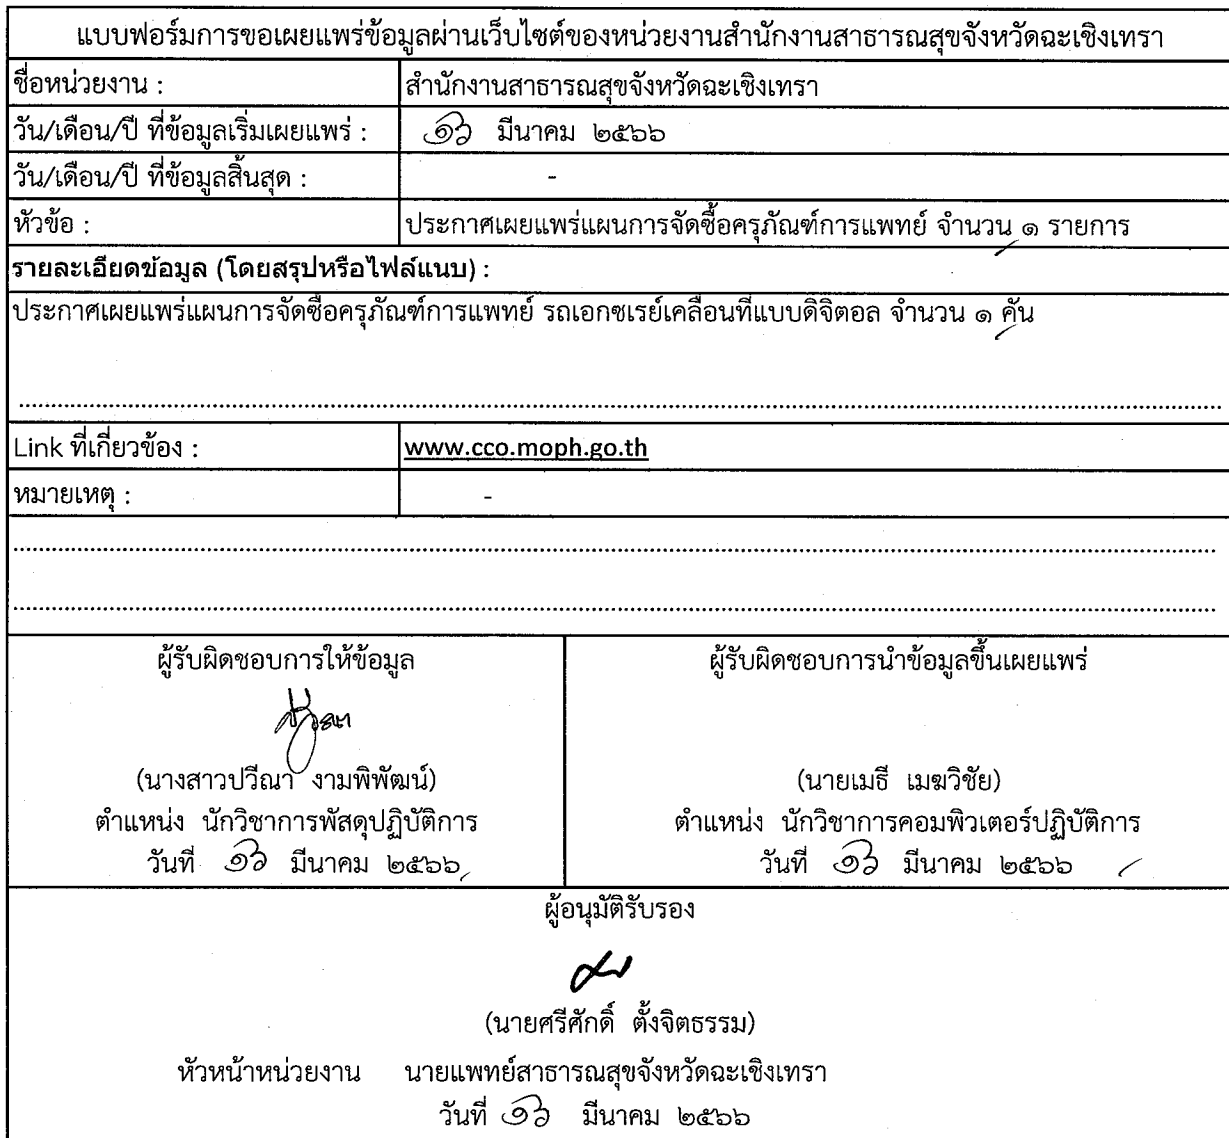 แบบฟอร์มการขอเผยแพร่ข้อมูลผ่านเว็บไซต์ของหน่วยงานสำนักงานสาธารณสุขจังหวัดฉะเชิงเทรา
ชื่อหน่วยงาน : สำนักงานสาธารณสุขจังหวัดฉะเชิงเทรา
วัน/เดือน/ปี ที่ข้อมูลเริ่มเผยแพร่ : ๑๖ มีนาคม ๒๕๖๖
วัน/เดือน/ปี ที่ข้อมูลสิ้นสุด : -
หัวข้อ : ประกาศเผยแพร่แผนการจัดซื้อครุภัณฑ์การแพทย์ จำนวน ๑ รายการ
รายละเอียดข้อมูล (โดยสรุปหรือไฟล์แนบ) :
ประกาศเผยแพร่แผนการจัดซื้อครุภัณฑ์การแพทย์ รถเอกซเรย์เคลื่อนที่แบบดิจิตอล จำนวน ๑ คัน
Link ที่เกี่ยวข้อง : www.cco.moph.go.th
หมายเหตุ : -
ผู้รับผิดชอบการให้ข้อมูล
(นางสาวปวีณา งามพิพัฒน์)
ตำแหน่ง นักวิชาการพัสดุปฏิบัติการ
วันที่ ๑๖ มีนาคม ๒๕๖๖
ผู้รับผิดชอบการนำข้อมูลขึ้นเผยแพร่
(นายเมธี เมฆวิชัย)
ตำแหน่ง นักวิชาการคอมพิวเตอร์ปฏิบัติการ
วันที่ ๑๖ มีนาคม ๒๕๖๖
ผู้อนุมัติรับรอง
(นายศรีศักดิ์ ตั้งจิตธรรม)
หัวหน้าหน่วยงาน นายแพทย์สาธารณสุขจังหวัดฉะเชิงเทรา
วันที่ ๑๖ มีนาคม ๒๕๖๖